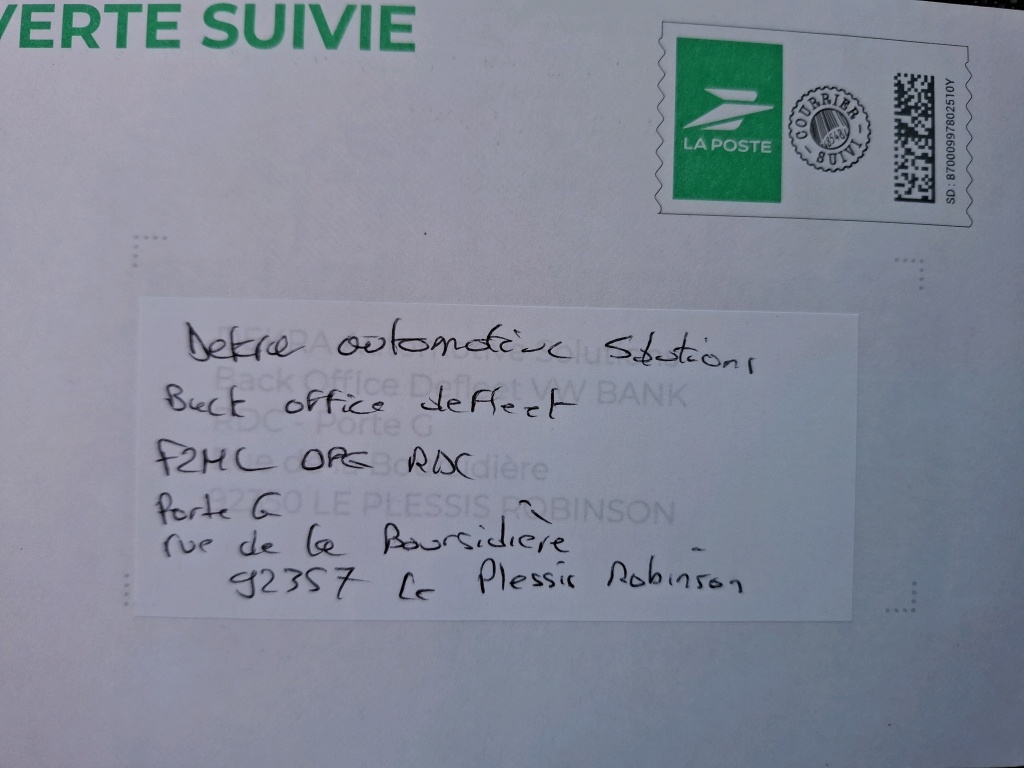 VERTE SUIVIE
LA POSTE
COURRIER SUIVI
SD : 87000997802510Y
Dekra automotive Solutions
Back office defleet
F2MC OPE RDC
Porte G
rue de la Boursidière
92357 Le Plessis Robinson
DEKRA Automotive Solutions
Back Office Defleet VW BANK
RDC - Porte G
Rue de la Boursidière
LE PLESSIS ROBINSON